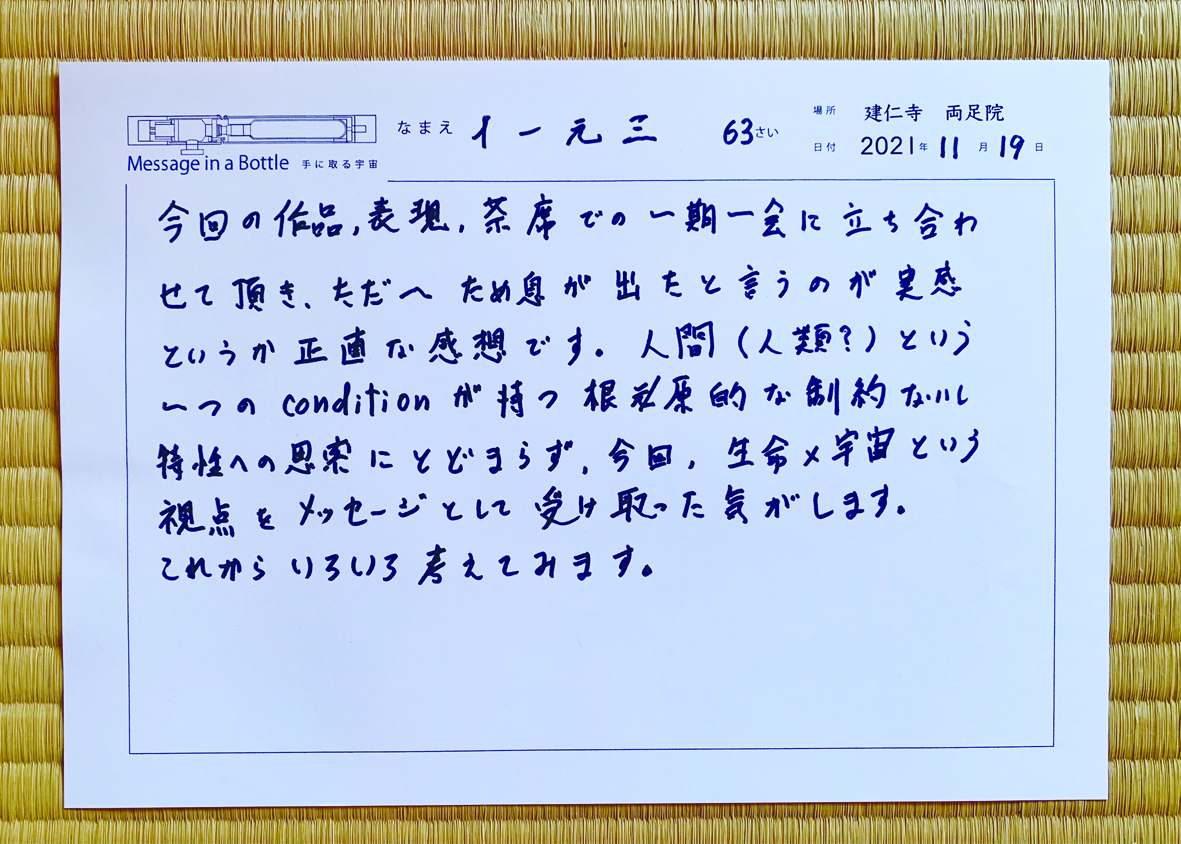 Message in a Bottle 手に取る宇宙
なまえ 十一元三 63さい
場所 建仁寺 両足院
日付 2021年 11月 19日
今回の作品,表現,茶席での一期一会に立ち合わ
せて頂き、ただへ ため息が出たと言うのが実感
というか正直な感想です。人間(人類?)という
一つの condition が持つ根源的な制約ないし
特性への思索にとどまらず,今回,生命×宇宙という
視点をメッセージとして受け取った気がします。
これからいろいろ考えてみます。